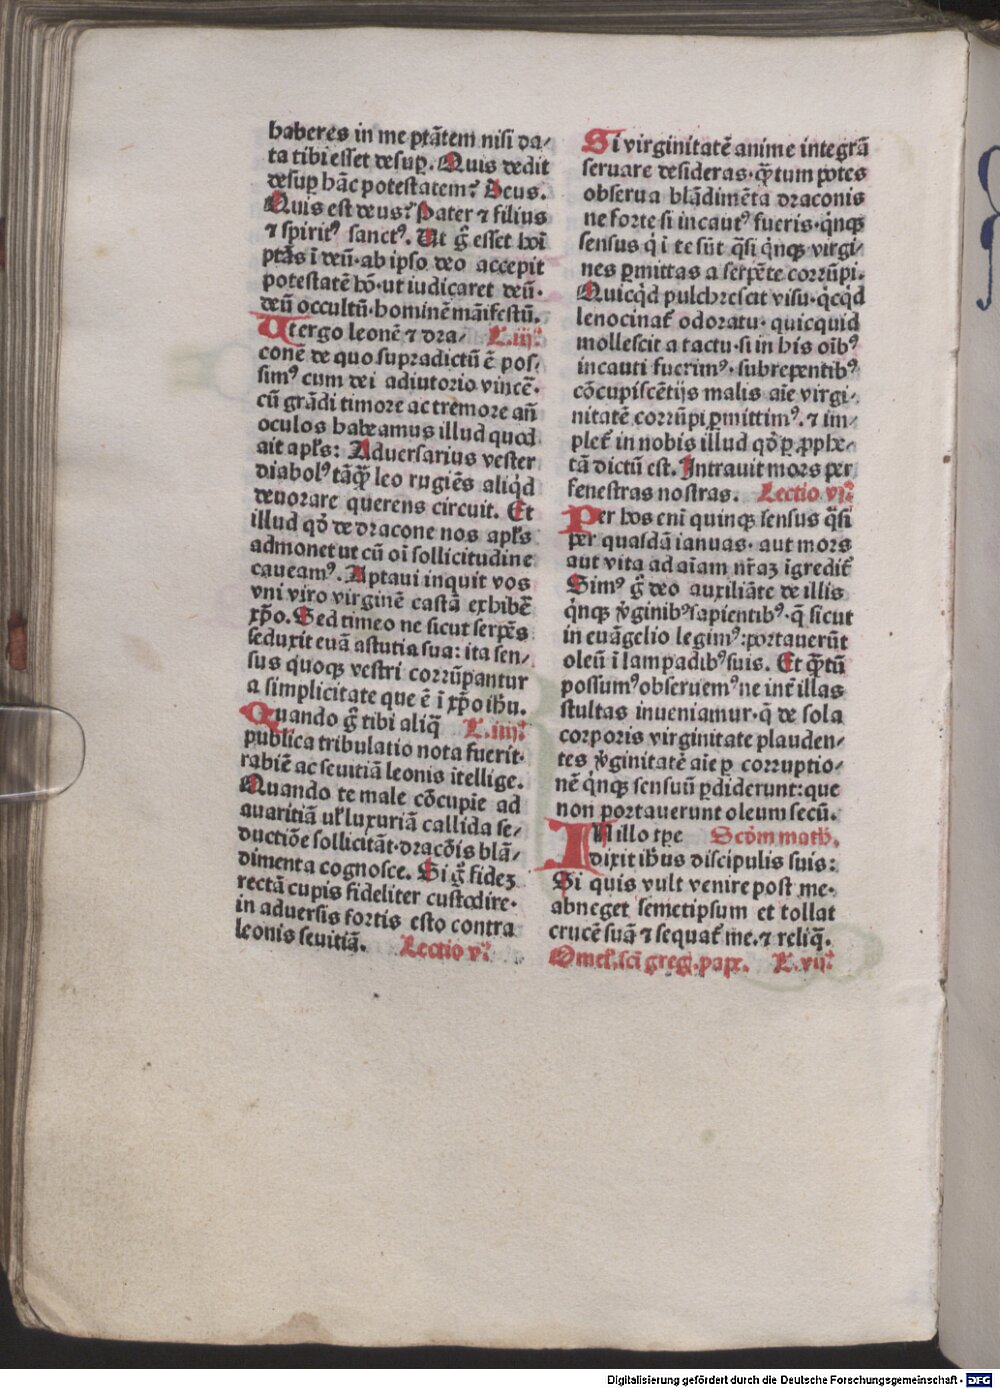 haberes in me ptātem nisi da/
ta tibi esset desuꝑ. Quis dedit
desuꝑ hāc potestatem? Deus.
Quis est deus? Pater ⁊ filius
⁊ spiritꝰ sanctꝰ. Ut gͦ esset hōi
ptās ī deū·ab ipso deo accepit
potestatē hō·ut iudicaret deū·
deū occultū·hominē māifestū.
Ut ergo leonē ⁊ dra/ L.iij.
conē de quo supradictū ē pos/
simꝰ cum dei adiutorio vincē·
cū grādi timore ac tremore añ
oculos habeamus illud quod
ait apƚs: Adversarius vester
diabolꝰ tāqͣꝫ leo rugiēs aliq̇d
devorare querens circuit. Et
illud qd̄ de dracone nos apƚs
admonet ut cū oī sollicitudine
caveamꝰ. Aptaui inquit vos
vni viro virginē castā exhibē
xp̄o. Sed timeo ne sicut serpēs
seduxit euā astutia sua: ita sen/
sus quoqꝫ vestri corrūpantur
a simplicitate que ē ī xp̄o ihū.
Quando gͦ tibi aliq̄ L.iiij.
publica tribulatio nota fuerit·
rabiē ac seuitiā leonis ītellige.
Quando te male cōcupie ad
auaritiā uƚ luxuriā callida se/
ductiōe sollicitāt·dracōis blā/
dimenta cognosce. Si gͦ fideꝫ
rectā cupis fideliter custodire·
in aduersis fortis esto contra
leonis seuitiā. Lectio v.
Si virginitatē anime integrā
seruare desideras·qͣꝫtum potes
obserua blādimēta draconis
ne forte si incautꝰ fueris·q̇nqꝫ
sensus q̇ ī te sūt q̄si q̇nqꝫ virgi/
nes ꝑmittas a serpēte corrūpi.
Quicq̇d pulchrescit visu·q̇cq̇d
lenocinat̄ odoratu·quicquid
mollescit a tactu·si in his oībꝰ
incauti fuerimꝰ·subrepentibꝰ
cōcupiscētijs malis aīe virgi/
nitatē corrūpi ꝑmittimꝰ.⁊ im/
plet̄ in nobis illud qd̄ ꝑ ꝓphe/
tā dictū est. Intrauit mors per
fenestras nostras. Lectio vj.
Per hos eni quinqꝫ sensus q̄si
per quasdā ianuas·aut mors
aut vita ad aīam nr̄aꝫ īgredit̄
Simꝰ gͦ deo auxiliāte de illis
q̇nqꝫ v̇ginibꝰ sapientibꝰ·q̄ sicut
in euāgelio legimꝰ:portauerūt
oleū ī lampadibꝰ suis. Et qͣꝫtū
possumꝰ obseruemꝰ ne int̄ illas
stultas inueniamur·q̄ de sola
corporis virginitate plauden/
tes v̇ginitatē aīe ꝑ corruptio/
nē q̇nqꝫ sensuū ꝑdiderunt:que
non portauerunt oleum secū.
IN illo tꝑe Scd̄m math.
dixit ihūs discipulis suis:
Si quis vult venire post me·
abneget semetipsum et tollat
crucē suā ⁊ sequat̄ me.⁊ reliq̄.
Omeƚ.sci greg.pape. L.vij.
Digitalisierung gefördert durch die Deutsche Forschungsgemeinschaft · DFG